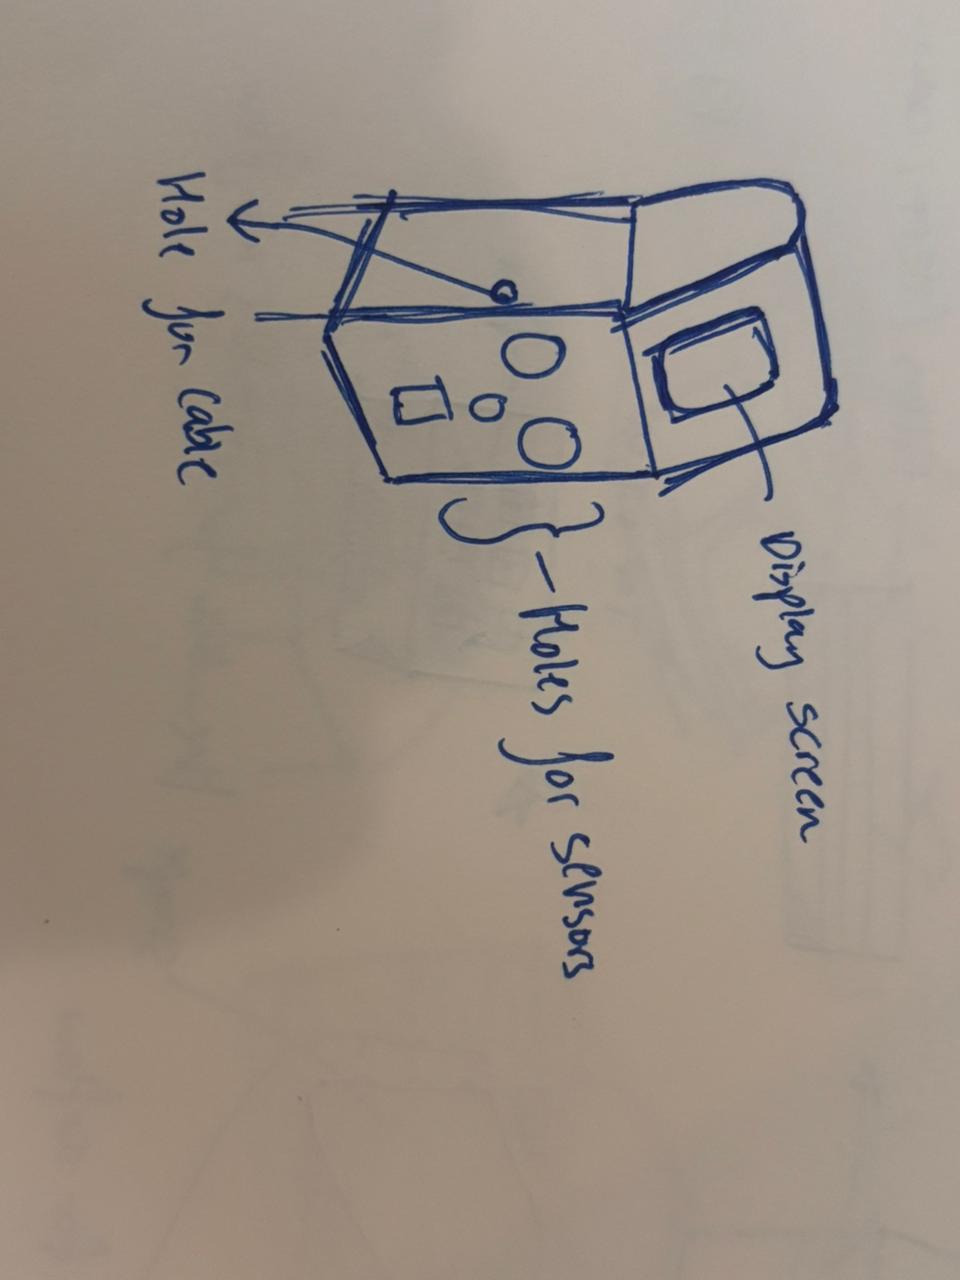 Display screen
Holes for sensors
Hole for cable